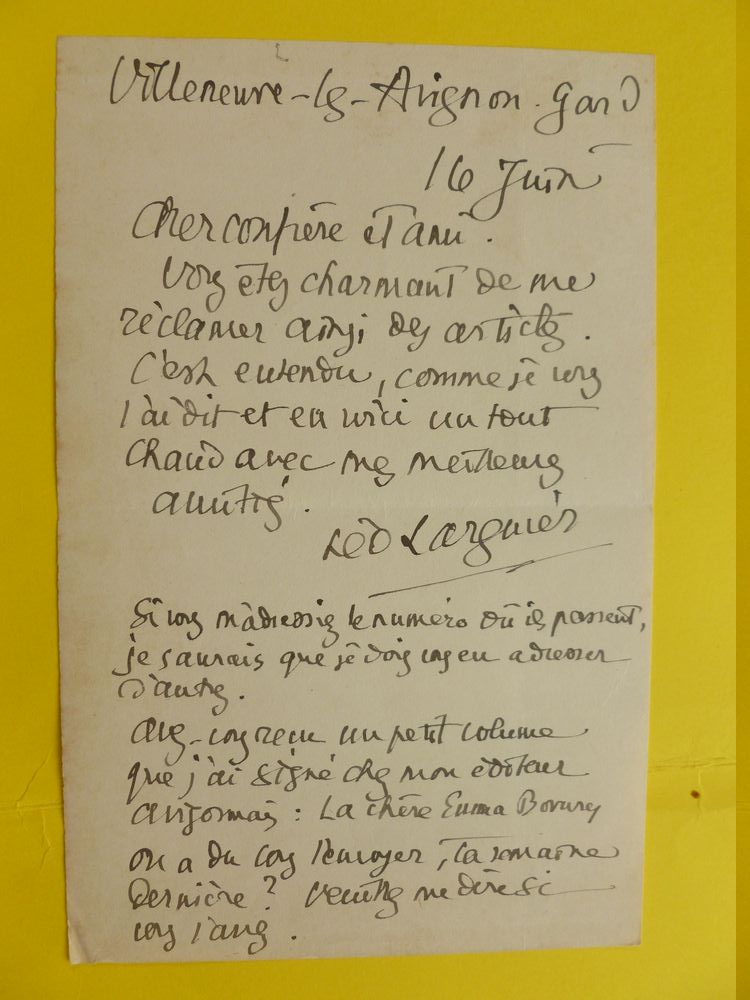 Villeneuve-lez-Avignon. Gard
16 Juin
Cher confrère et ami.
Vous êtes charmant de me
réclamer ainsi des articles.
C'est entendu, comme je vous
l'ai dit et en voici un tout
chaud avec mes meilleures
amitiés.
Léo Larguier
Si vous m'adressiez le numéro où ils passent,
je saurais que je dois vous en adresser
d'autres.
Avez-vous reçu un petit volume
que j'ai signé chez mon éditeur
avignonnais : La chère Emma Bovary
on a du vous l'envoyer, la semaine
dernière ? Veuillez me dire si
vous l'avez.